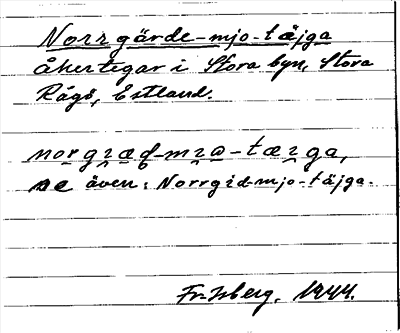 Norrgärde-mjo-täjga
åkertegar i Stora byn, Stora
Rågö, Estland.
se även: Norrgid-mjo-täjga.
Fr. Isberg, 1944.